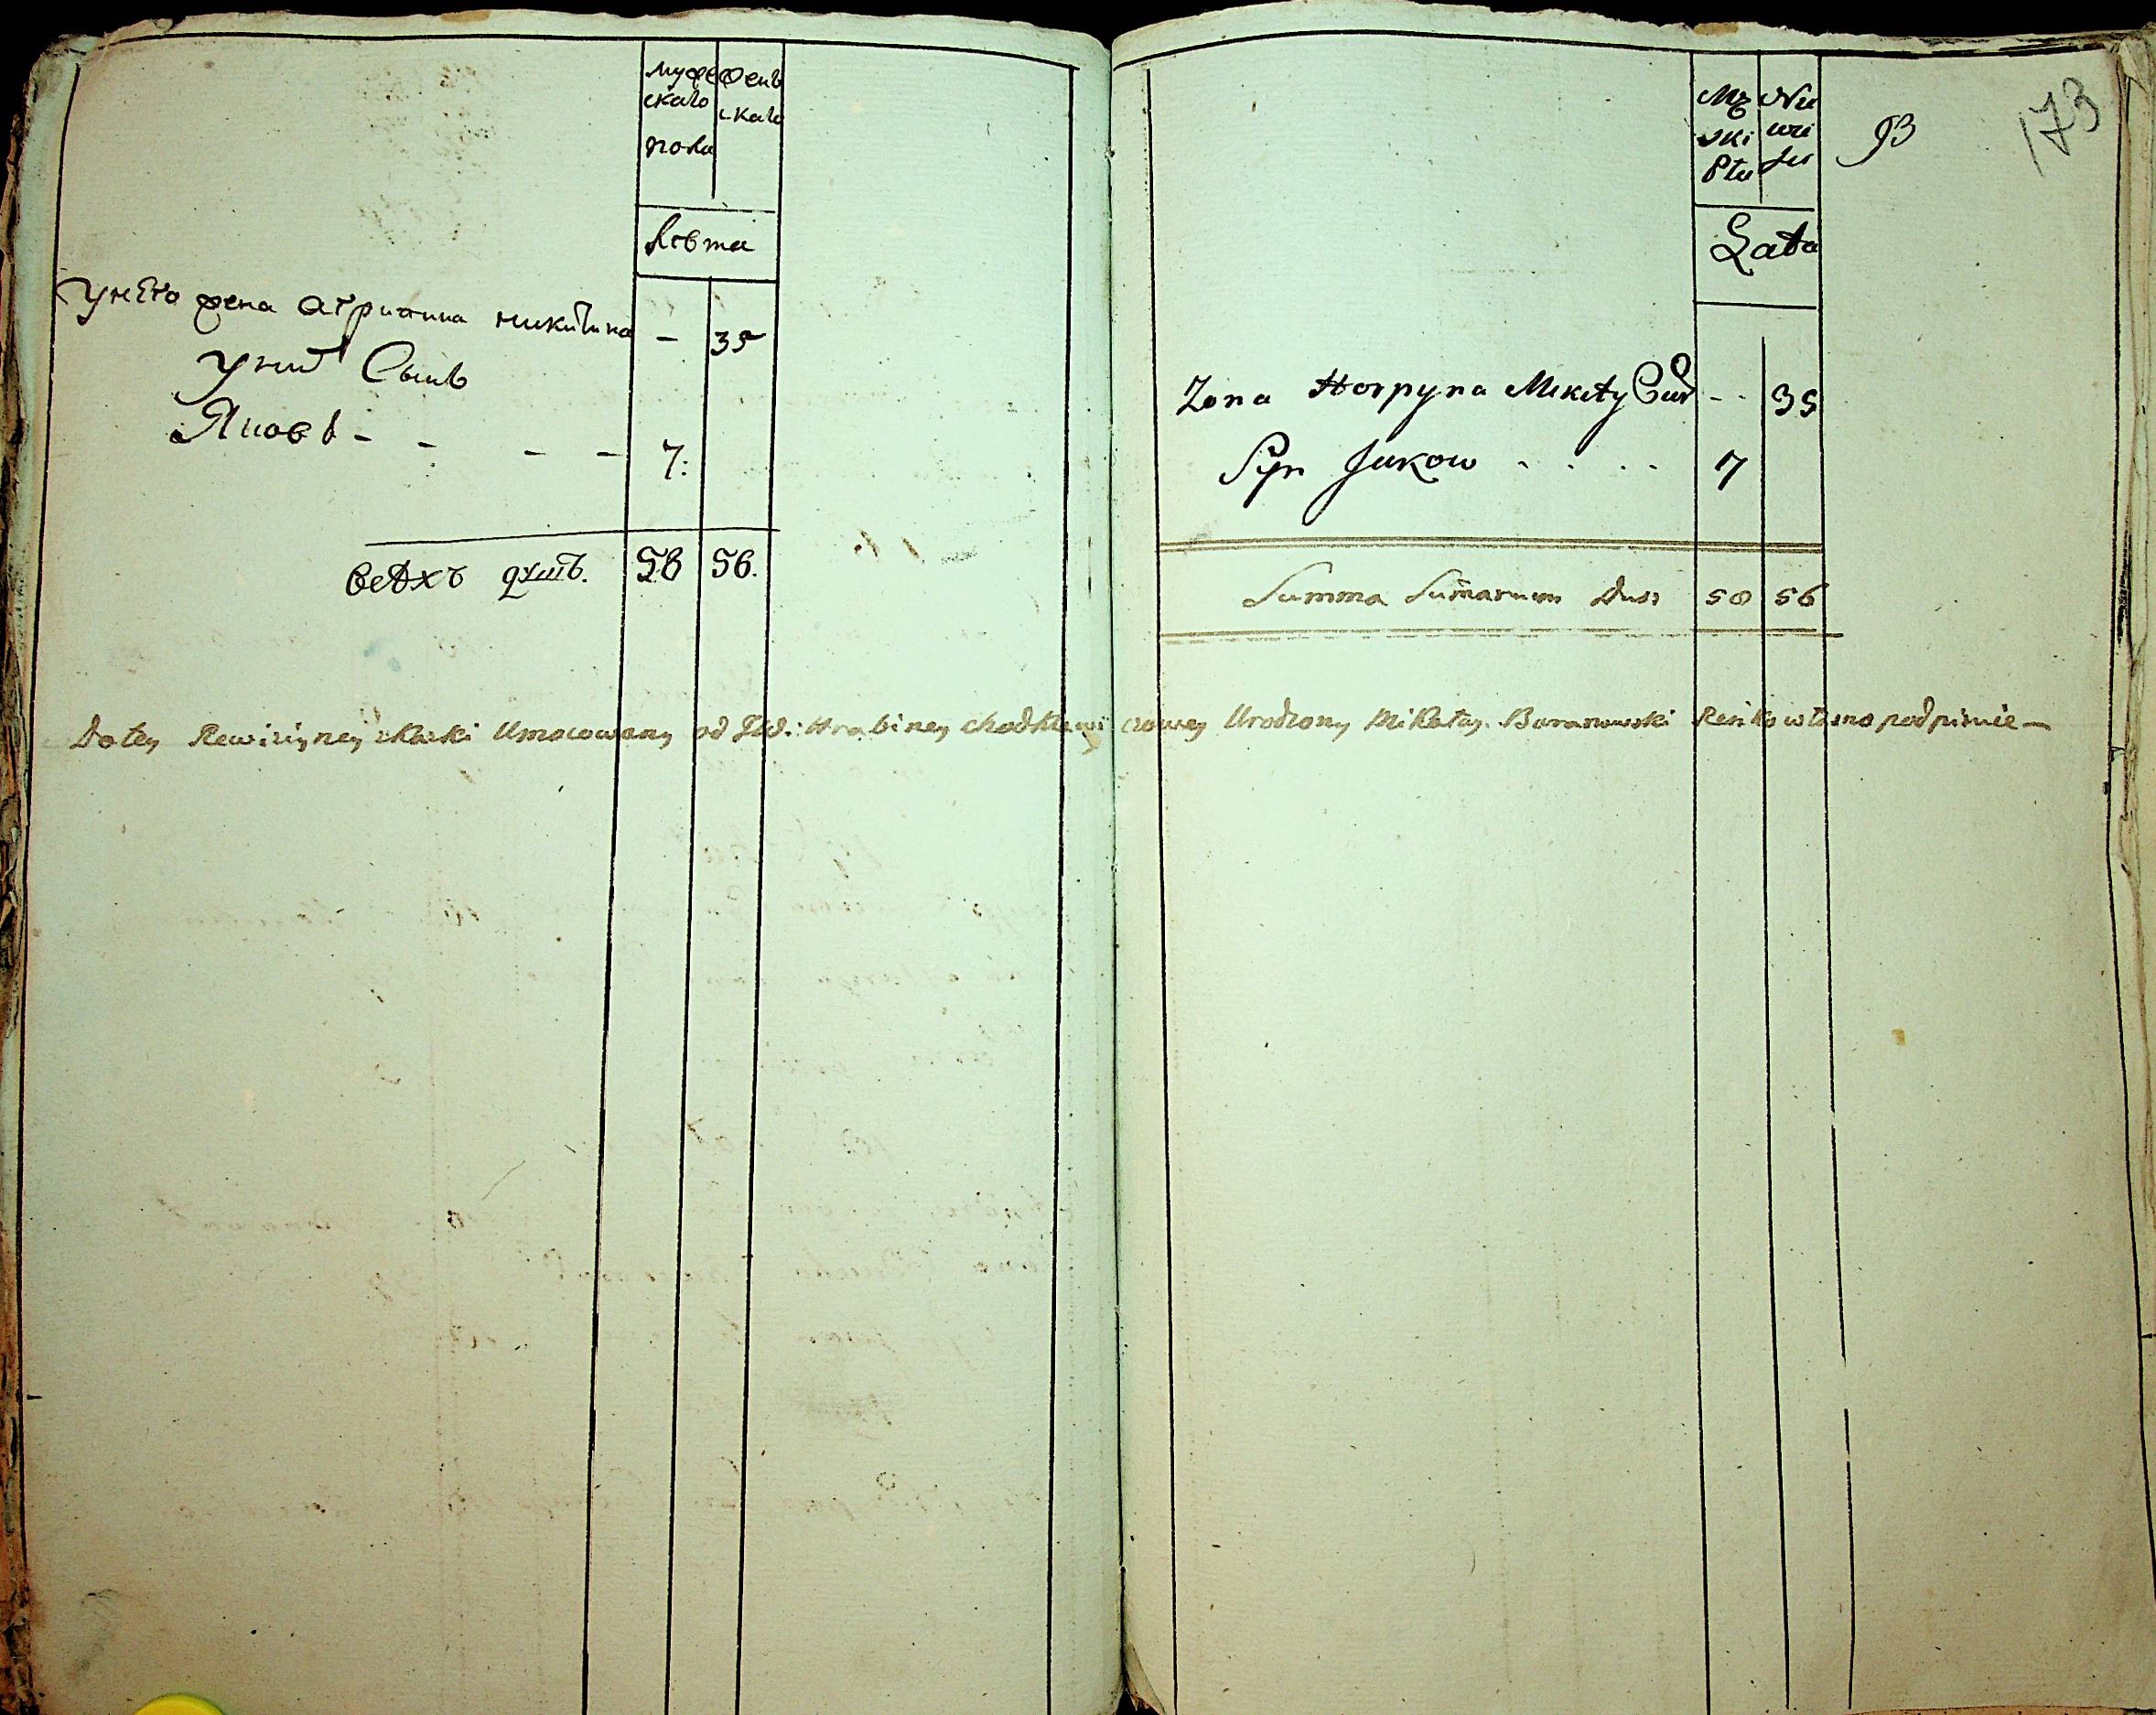 мужескаго пола
женскаго
Лѣта
У него жена Агрипина никитина - 35
У них Сынъ
Яковъ - - - - 7:
всѣхъ душъ. 58 56.
93
173
Męski Płci
Niewieści
Lata
Zona Horpyna Mikity Cur - - 35
Syn Jakow . . . . 7
Summa Summarum Dusz 58 56
Do tey Rewizyiney skaski Umocowany od JW: Hrabiney Chodkiewiczowey Urodzony Mikołay Baranowski Ręką własną podpisuię —